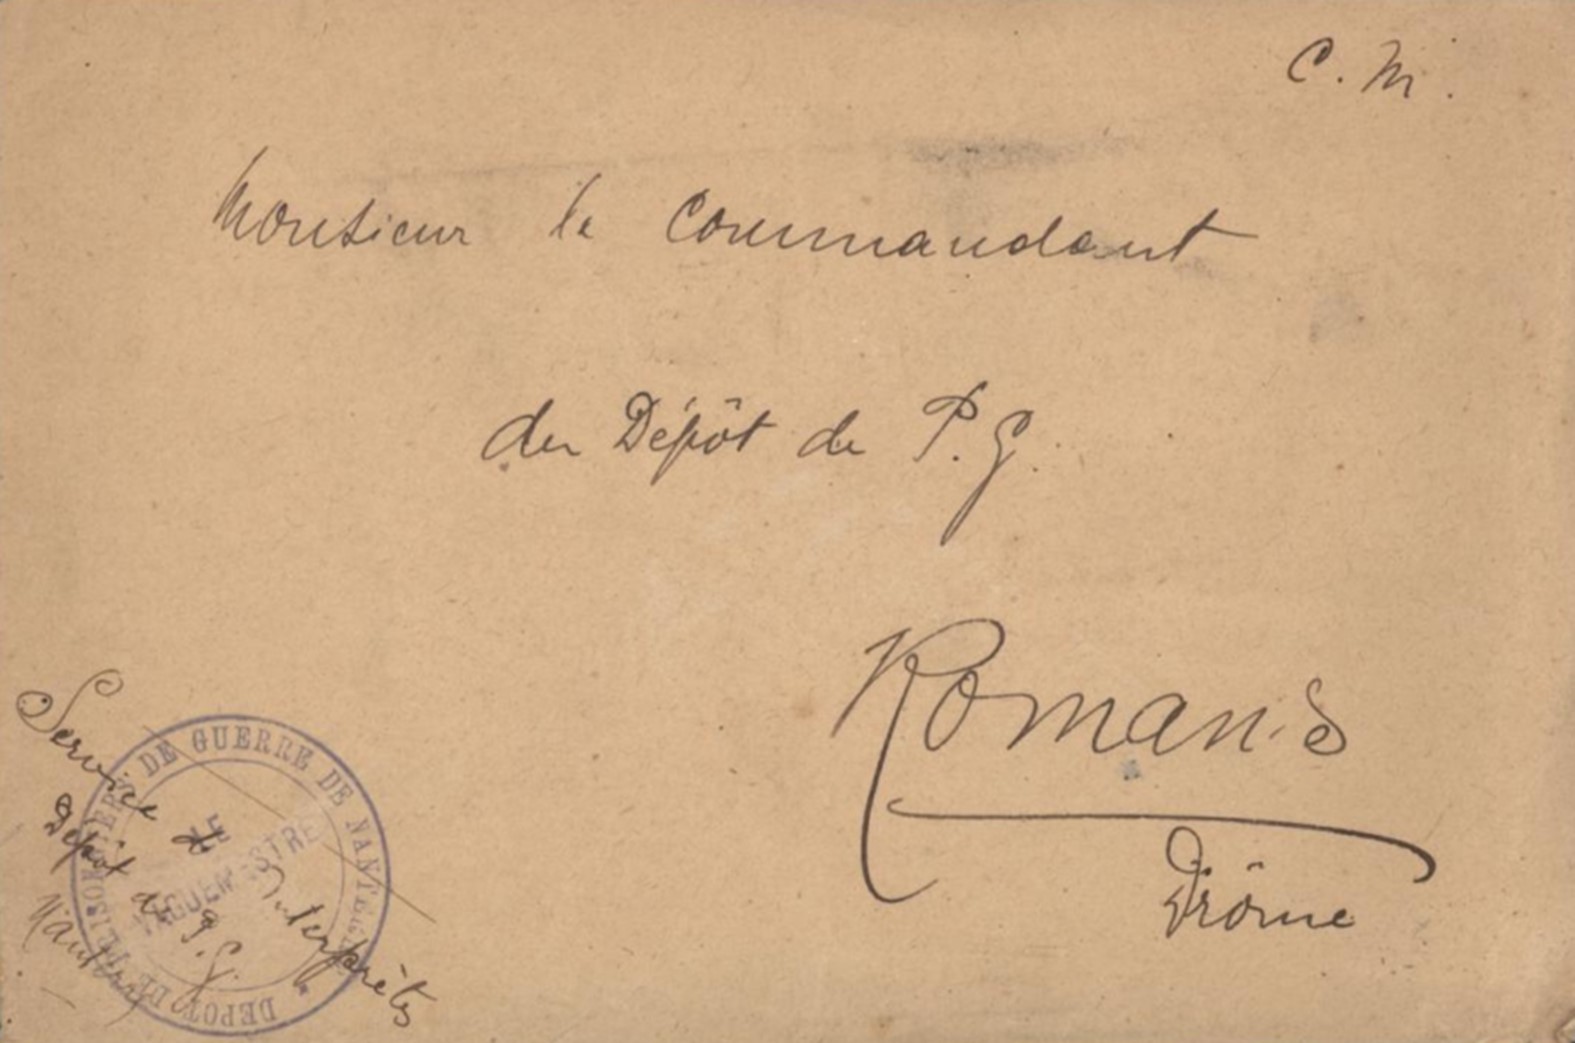 C. M.
Monsieur le Commandant
du Dépôt de P. G.
Romans
Drôme
Service d'Interprètes
Dépôt de P. G.
DEPOT DE PRISONNIERS DE GUERRE DE
LE
VAGUEMESTRE